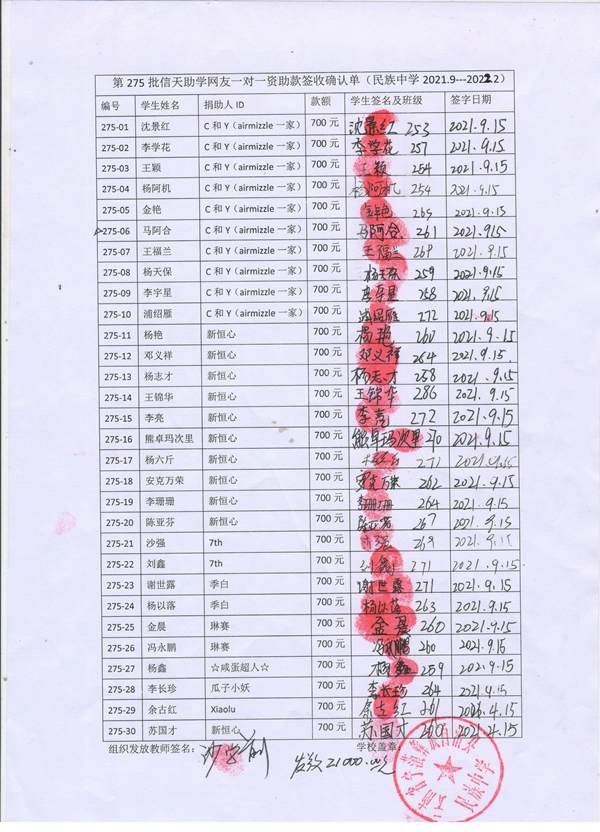 第 275 批信天助学网友一对一资助款签收确认单（民族中学 2021.9---2022.2）
编号 学生姓名 捐助人 ID 款额 学生签名及班级 签字日期
275-01 沈景红 C 和 Y（airmizzle 一家） 700 元 沈景红 253 2021.9.15
275-02 李学花 C 和 Y（airmizzle 一家） 700 元 李学花 257 2021.9.15
275-03 王颖 C 和 Y（airmizzle 一家） 700 元 王颖 254 2021.9.15
275-04 杨阿机 C 和 Y（airmizzle 一家） 700 元 杨阿机 254 2021.9.15
275-05 金艳 C 和 Y（airmizzle 一家） 700 元 金艳 265 2021.9.15
275-06 马阿合 C 和 Y（airmizzle 一家） 700 元 马阿合 261 2021.9.15
275-07 王福兰 C 和 Y（airmizzle 一家） 700 元 王福兰 269 2021.9.15
275-08 杨天保 C 和 Y（airmizzle 一家） 700 元 杨天保 259 2021.9.15
275-09 李宇星 C 和 Y（airmizzle 一家） 700 元 李宇星 258 2021.9.15
275-10 浦绍雁 C 和 Y（airmizzle 一家） 700 元 浦绍雁 272 2021.9.15
275-11 杨艳 新恒心 700 元 杨艳 260 2021.9.15
275-12 邓义祥 新恒心 700 元 邓义祥 264 2021.9.15
275-13 杨志才 新恒心 700 元 杨志才 258 2021.9.15
275-14 王锦华 新恒心 700 元 王锦华 286 2021.9.15
275-15 李亮 新恒心 700 元 李亮 272 2021.9.15
275-16 熊卓玛次里 新恒心 700 元 熊卓玛次里 270 2021.9.15
275-17 杨六斤 新恒心 700 元 271 2021.9.15
275-18 安克万荣 新恒心 700 元 安克万荣 262 2021.9.15
275-19 李珊珊 新恒心 700 元 李珊珊 264 2021.9.15
275-20 陈亚芬 新恒心 700 元 陈亚芬 267 2021.9.15
275-21 沙强 7th 700 元 沙强 269 2021.9.15
275-22 刘鑫 7th 700 元 刘鑫 271 2021.9.15
275-23 谢世露 季白 700 元 谢世露 271 2021.9.15
275-24 杨以落 季白 700 元 杨以落 263 2021.9.15
275-25 金晨 琳赛 700 元 金晨 260 2021.9.15
275-26 冯永鹏 琳赛 700 元 冯永鹏 260 2021.9.15
275-27 杨鑫 ☆咸蛋超人☆ 700 元 杨鑫 259 2021.9.15
275-28 李长珍 瓜子小妖 700 元 李长珍 264 2021.9.15
275-29 余古红 Xiaolu 700 元 余古红 261
275-30 苏国才 新恒心 700 元 苏国才
组织发放教师签名： 学校盖章：
发数21000.00元